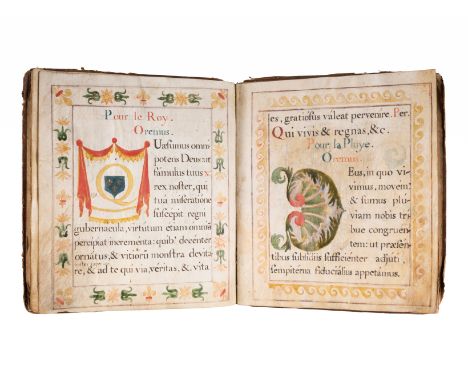 Pour le Roy.
Oremus.
Uæsumus omni
potens Deus: ut
famulus tuus
rex noster, qui
tua miseratione
suscepit regni
gubernacula, virtutum etiam omniū
percipiat incrementa: quib⁹ decenter
ornatus, & vitiorū monstra devita
re, & ad te qui via, veritas, & vita
es, gratiosus valeat pervenire. Per.
Qui vivis & regnas, &c.
Pour la Pluye.
Oremus.
Eus, in quo vi
vimus, movem⁹
& sumus plu
viam nobis tri
bue congruen
tem: ut præsen
tibus subsidiis sufficienter adjuti,
sempiterna fiducialius appetamus.